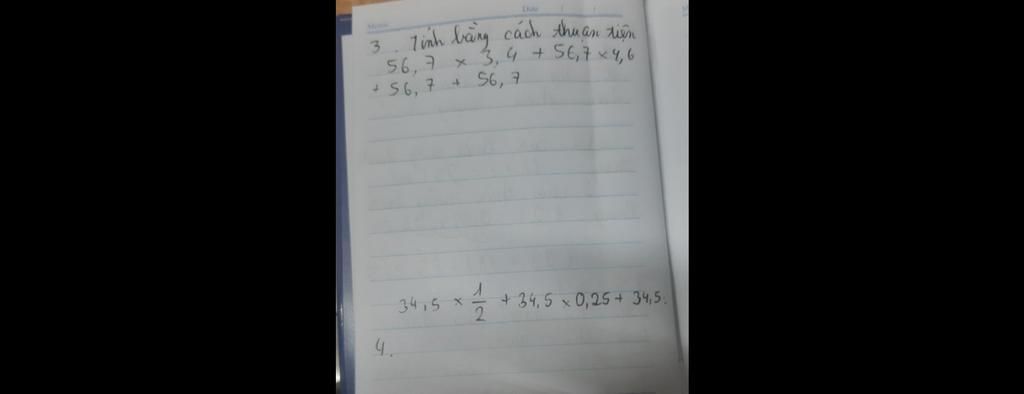 Date / /
Memo
3. Tính bằng cách thuận tiện
56,7 × 3,4 + 56,7 × 4,6
+ 56,7 + 56,7
34,5 × 1/2 + 34,5 × 0,25 + 34,5.
4.